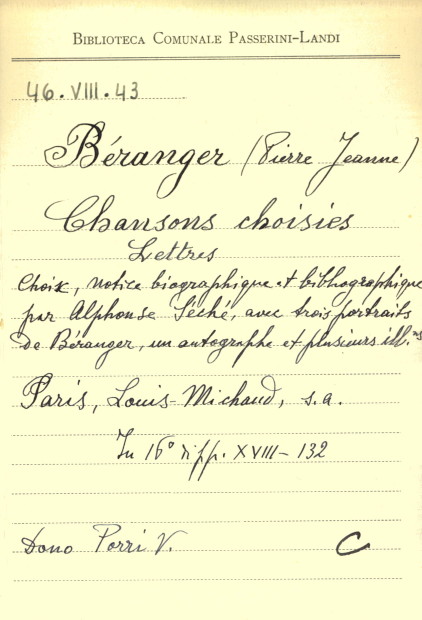 BIBLIOTECA COMUNALE PASSERINI-LANDI
46.VIII.43
Béranger (Pierre Jeanne)
Chansons choisies
Lettres
Choix, notice biographique et bibliographique
par Alphonse Séché, avec trois portraits
de Béranger, un autographe et plusieurs ill.ns
Paris, Louis-Michaud, s.a.
In 16° di pp. XVIII-132
Dono Porri V.
C